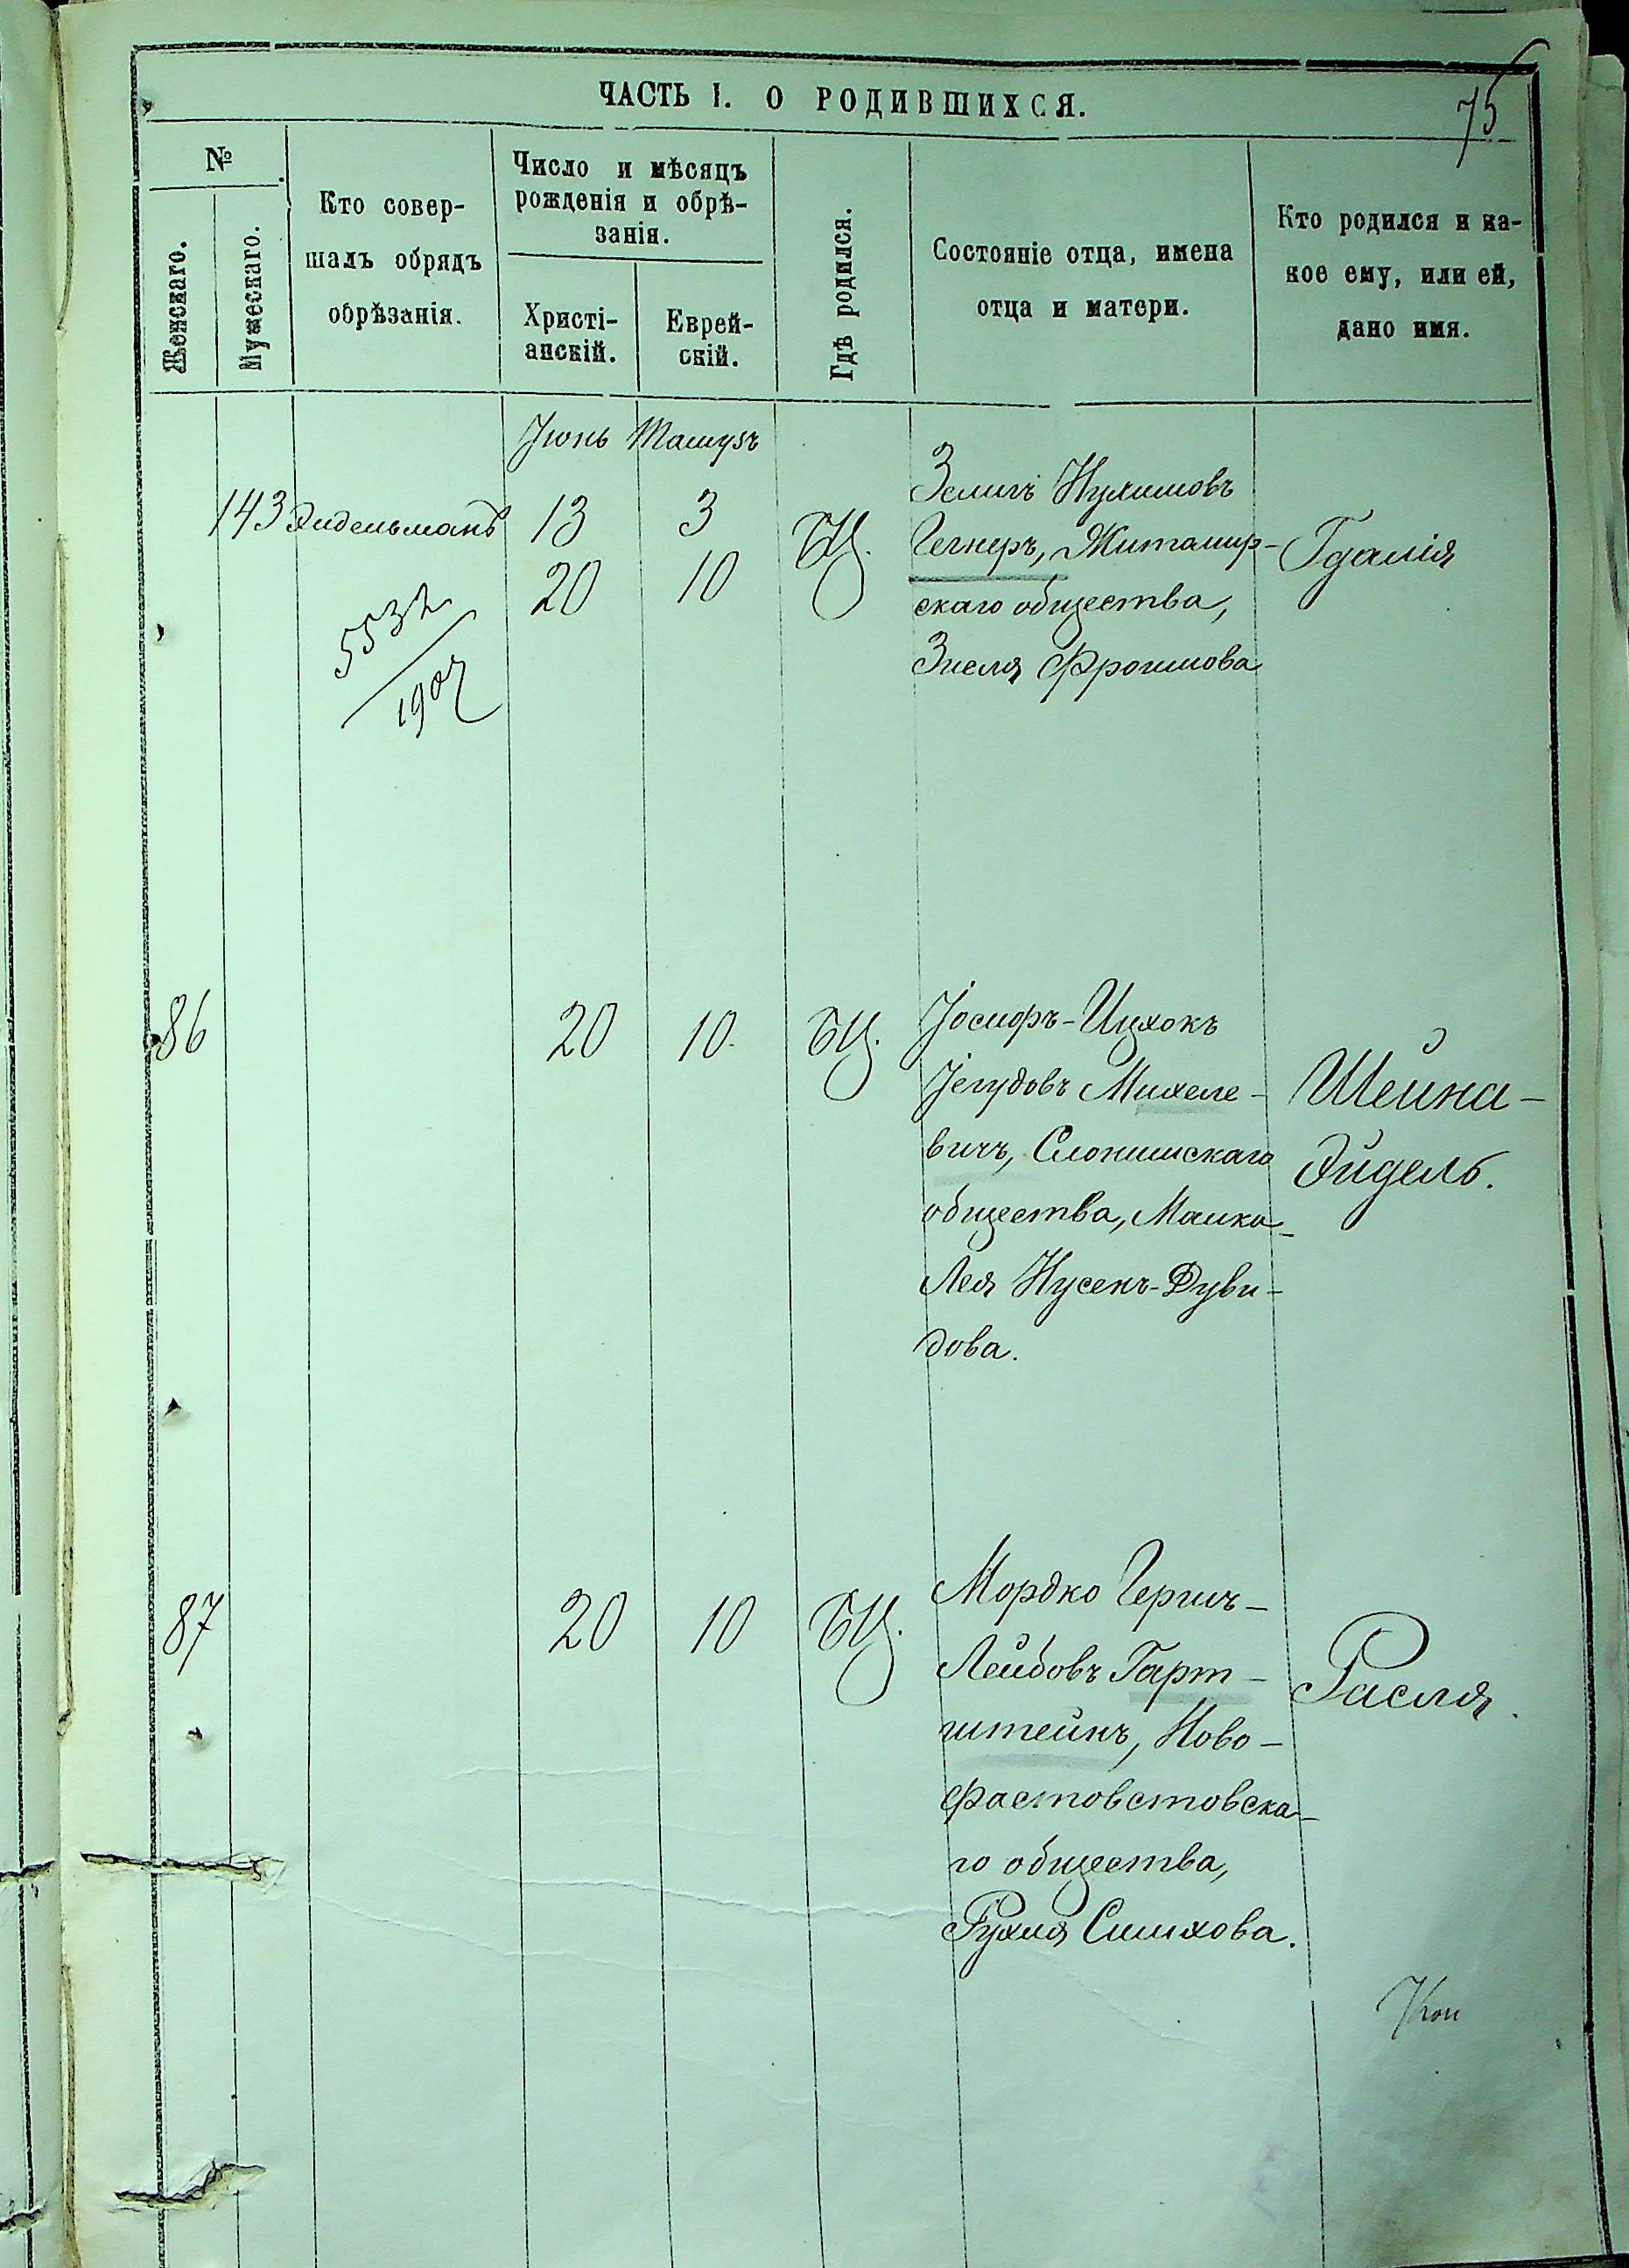 ЧАСТЬ I. О РОДИВШИХСЯ.
75
№
Женскаго.
Мужескаго.
Кто совер-
шалъ обрядъ
обрѣзанія.
Число и мѣсяцъ
рожденія и обрѣ-
занія.
Христі-
анскій.
Еврей-
скій.
Гдѣ родился.
Состояніе отца, имена
отца и матери.
Кто родился и ка-
кое ему, или ей,
дано имя.
Іюнь Тамузъ
143 Эидельманъ 13 3 БЦ.
20 10
5532
1907
Зелигъ Нухимовъ
Гегнеръ, Житамир-
скаго общества,
Зисля Фроимова
Гдалія
86 20 10. БЦ.
Іосифъ-Ицхокъ
Іегудовъ Михеле-
вичъ, Слонимскаго
общества, Малка-
Лея Нусенъ-Дуви-
дова.
Шейна-
Эйдель.
87 20 10 БЦ.
Мордко Герш-
Лейбовъ Гарт-
штейнъ, Ново-
фастовстовска-
го общества,
Рухля Симхова.
Расля.